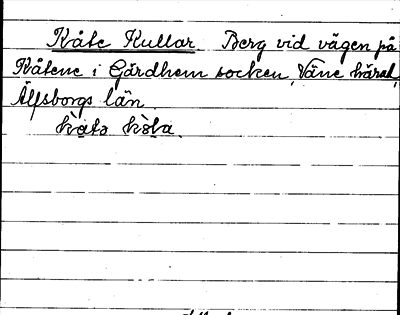 Kåte Kullar Berg vid vägen på
Kåtene i Gärdhem socken, Väne härad,
Älfsborgs län.